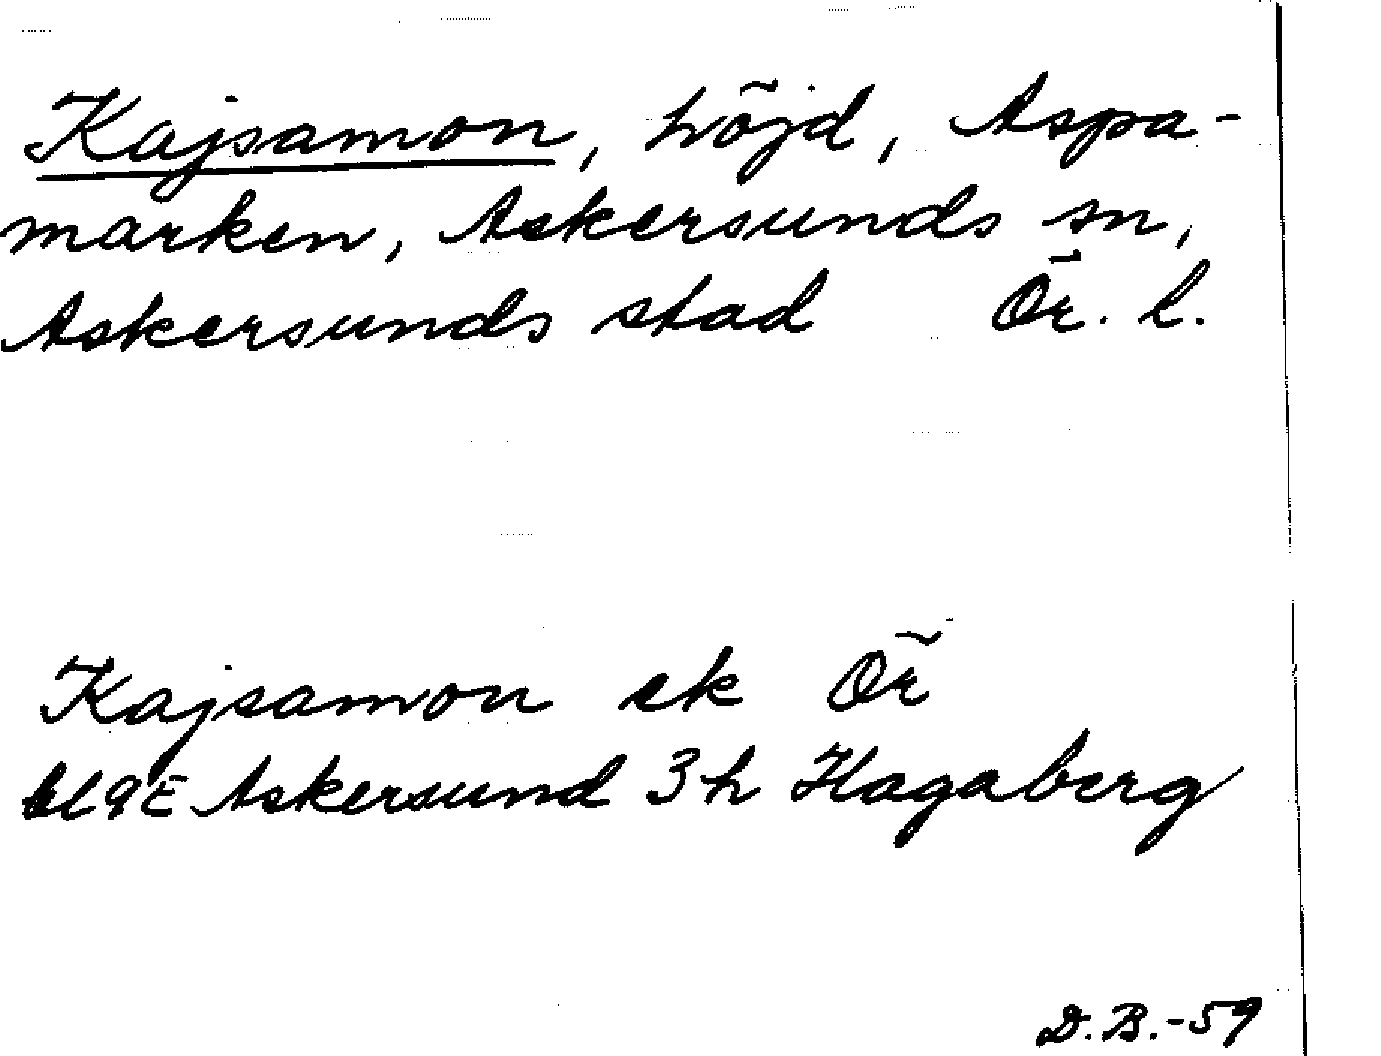 Kajsamon, höjd, Aspa-
marken, Askersunds sn,
Askersunds stad Ör. l.
Kajsamon ek Ör
bl 9E Askersund 3h Hagaberg
D.B.-59